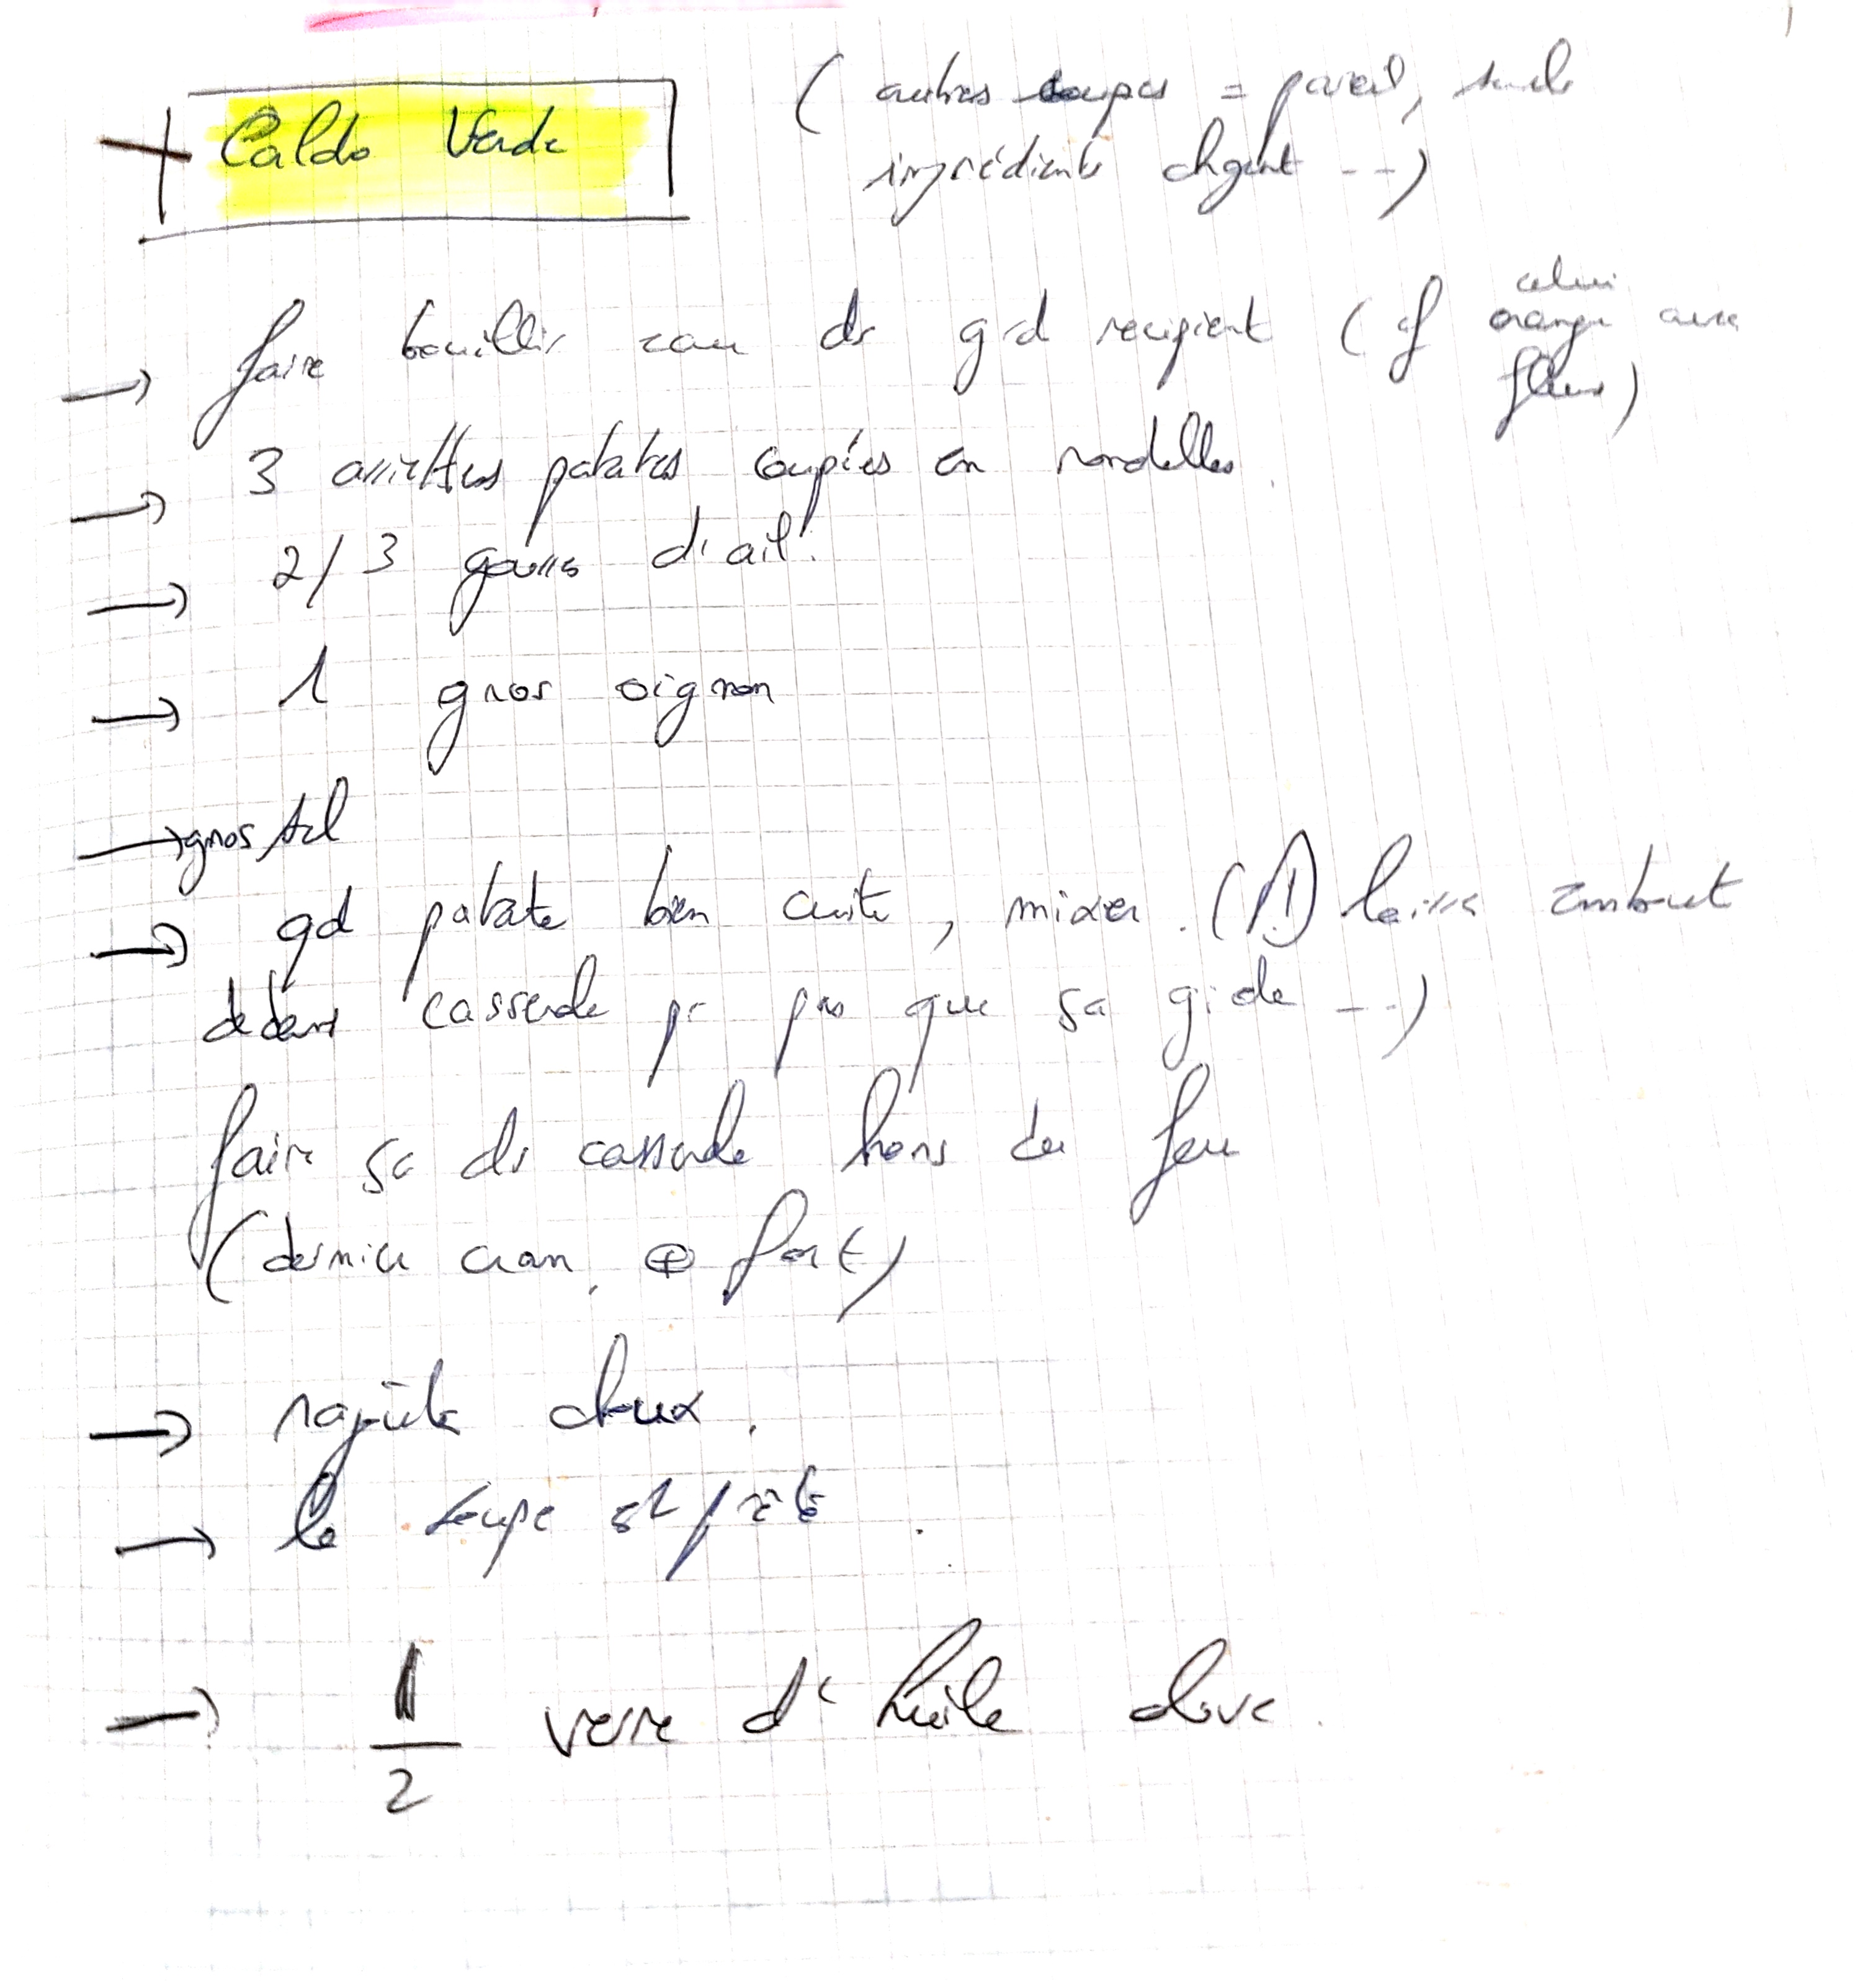 Caldo Verde
( autres soupes = pareil, seule
ingrédients chgent --)
→ faire bouillir eau ds grd recipient ( cf celui
orange avec
fleurs)
→ 3 assiettes patates coupées en rondelles.
→ 2/3 gousses d'ail.
→ 1 gros oignon
→ gros sel
→ qd patate bien cuite, mixer. (⚠) laisser embout
dedans casserole pr pas que sa gicle --)
faire sa ds casserole hors du feu
(dernier cran, ⊕ fort)
→ rajoute choux.
→ la soupe est prête.
→ 1/2 verre d'huile olive.